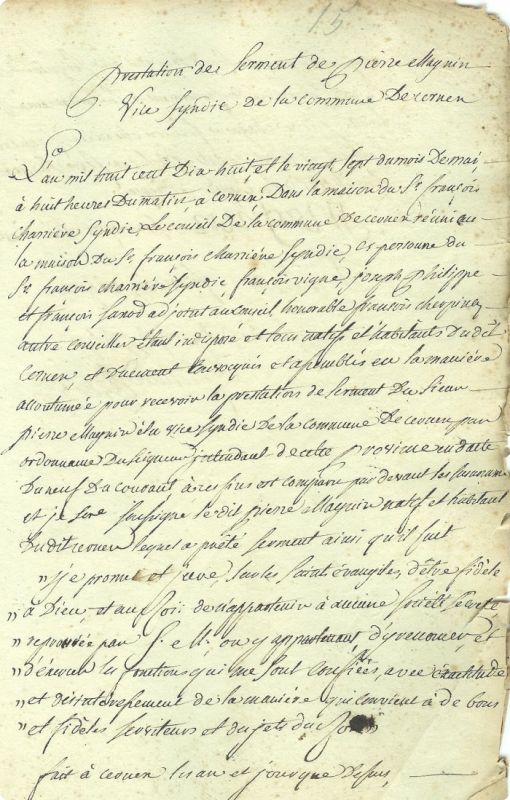 15
Prestation de Serment de pierre Magnin
Vice Syndic de la commune De cernen
L'an mil huit cent Dix huit et le vingt Sept du mois De mai,
à huit heures Du matin, à cernen, Dans la maison du Sr. françois
charrière Syndic, Le conseil De la commune De cernen réuni au
la maison Du Sr. françois charrière Syndic, Es personne du
Sr. françois charrière Syndic françois vigne, joseph philippe
et françois adjoint au Conseil honorable françois
autre conseiller étant indisposé et tous natifs et habitants Du dit
Cernen, et Duement Convoqués et assemblés en la manière
accoutumée pour recevoir la prestation de Serment Du Sieur
pierre Magnin élu vice Syndic De la commune De cernen, par
ordonnance Du Seigneur jntendant de cette province en datte
Du neuf Du courant, à ces fins est comparu par devant les
et je Sre. Soussigné le dit pierre Magnin natif et habitant
Du dit cernen lequel a prêté Serment ainsi qu'il suit
" Je promet et jure, Sur les Saint évangiles, d'être fidèle
" à Dieu, et au Roi, de n'appartenir à aucune Société Secrete
" reprouvée par S. M. ou y appartenant d'y renoncer, et
" d'éxercer les fonctions qui me sont confiées, avec éxactitude
" et désintéressement de la manière qui convient à de bons
" et fidèles Serviteurs et Sujets du
fait à cernen les an et jour que Dessus,